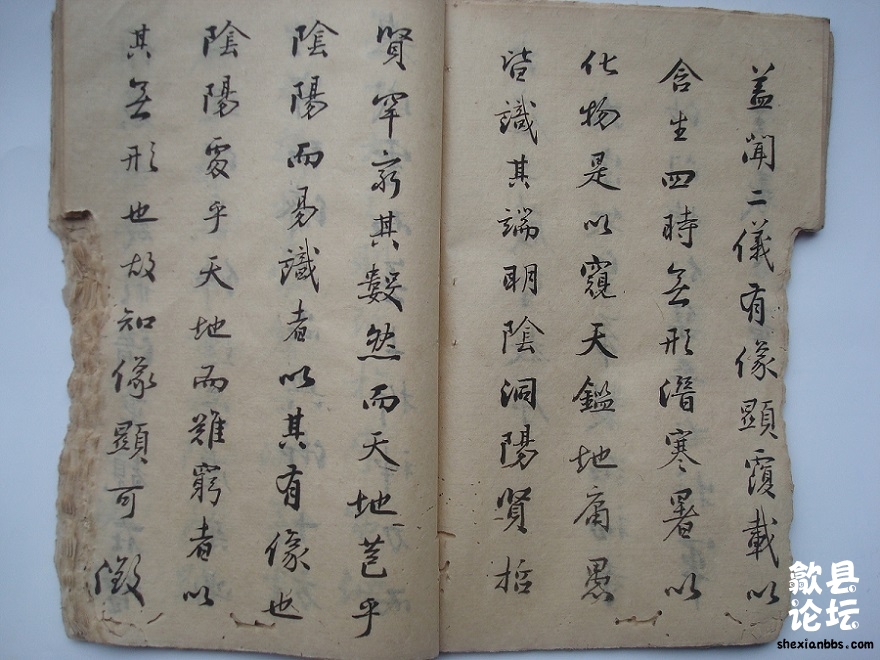 盖聞二儀有像顯覆載以
含生四時無形潛寒暑以
化物是以窺天鑑地庸愚
皆識其端明陰洞陽賢哲
賢罕窮其數然而天地苞乎
陰陽而易識者以其有像也
陰陽處乎天地而難窮者以
其無形也故知像顯可徵
歙县
论坛
shexianbbs.com